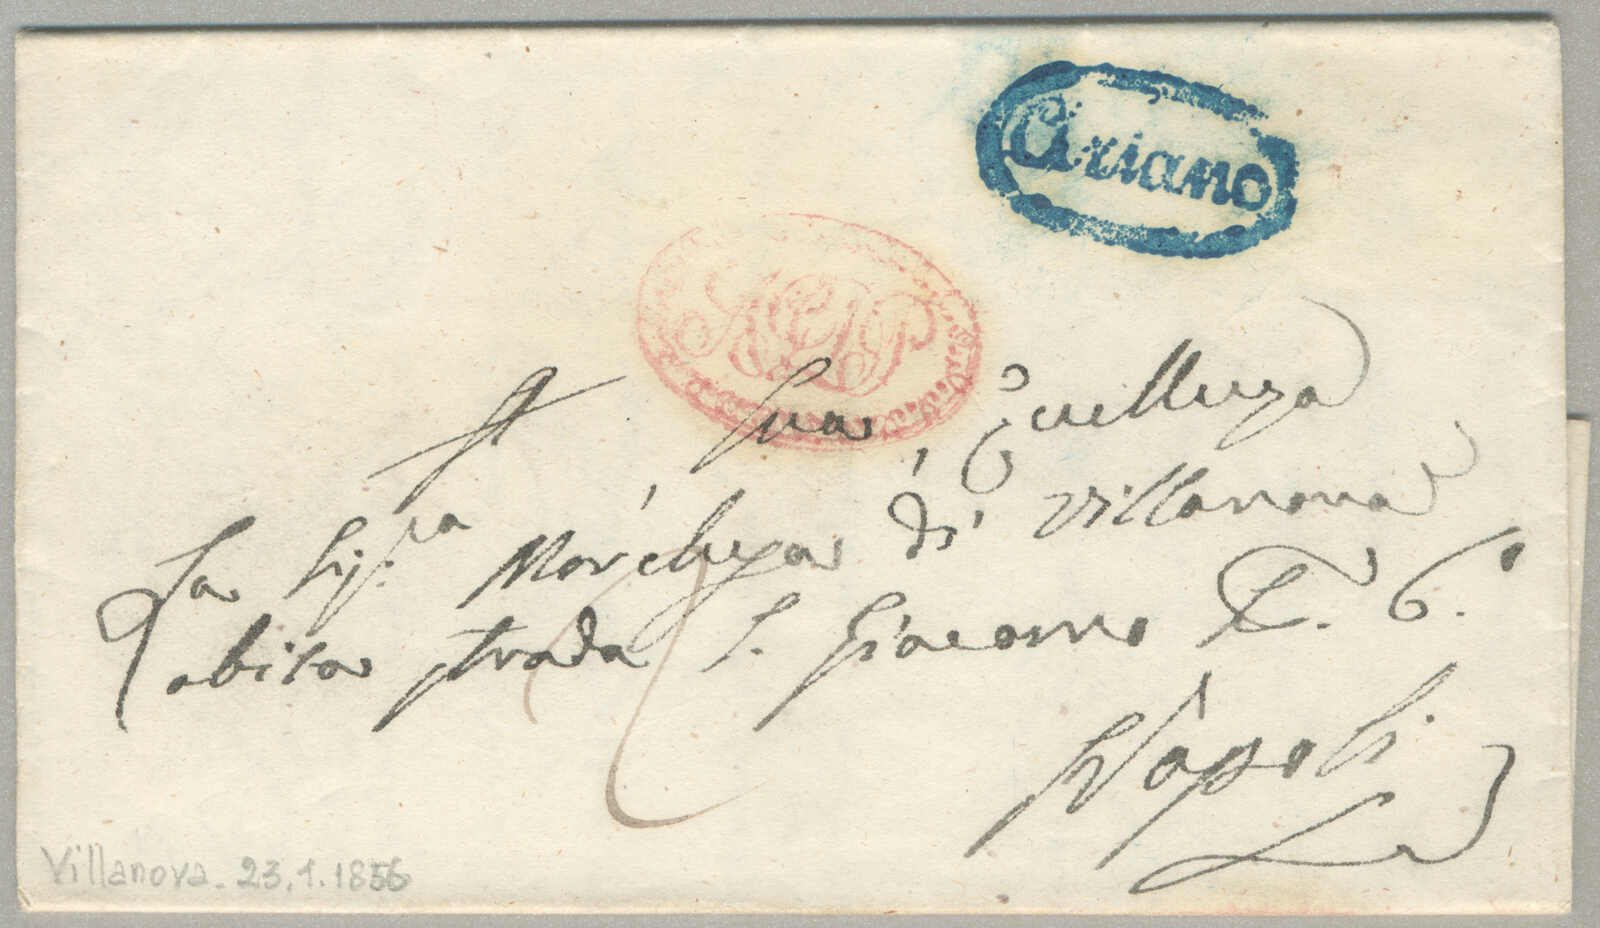 Ariano
A Sua Eccellenza
La Sig.ra Marchesa di Villanova
abita strada S. Giacomo N. 6.
Napoli
Villanova. 23.1.1856